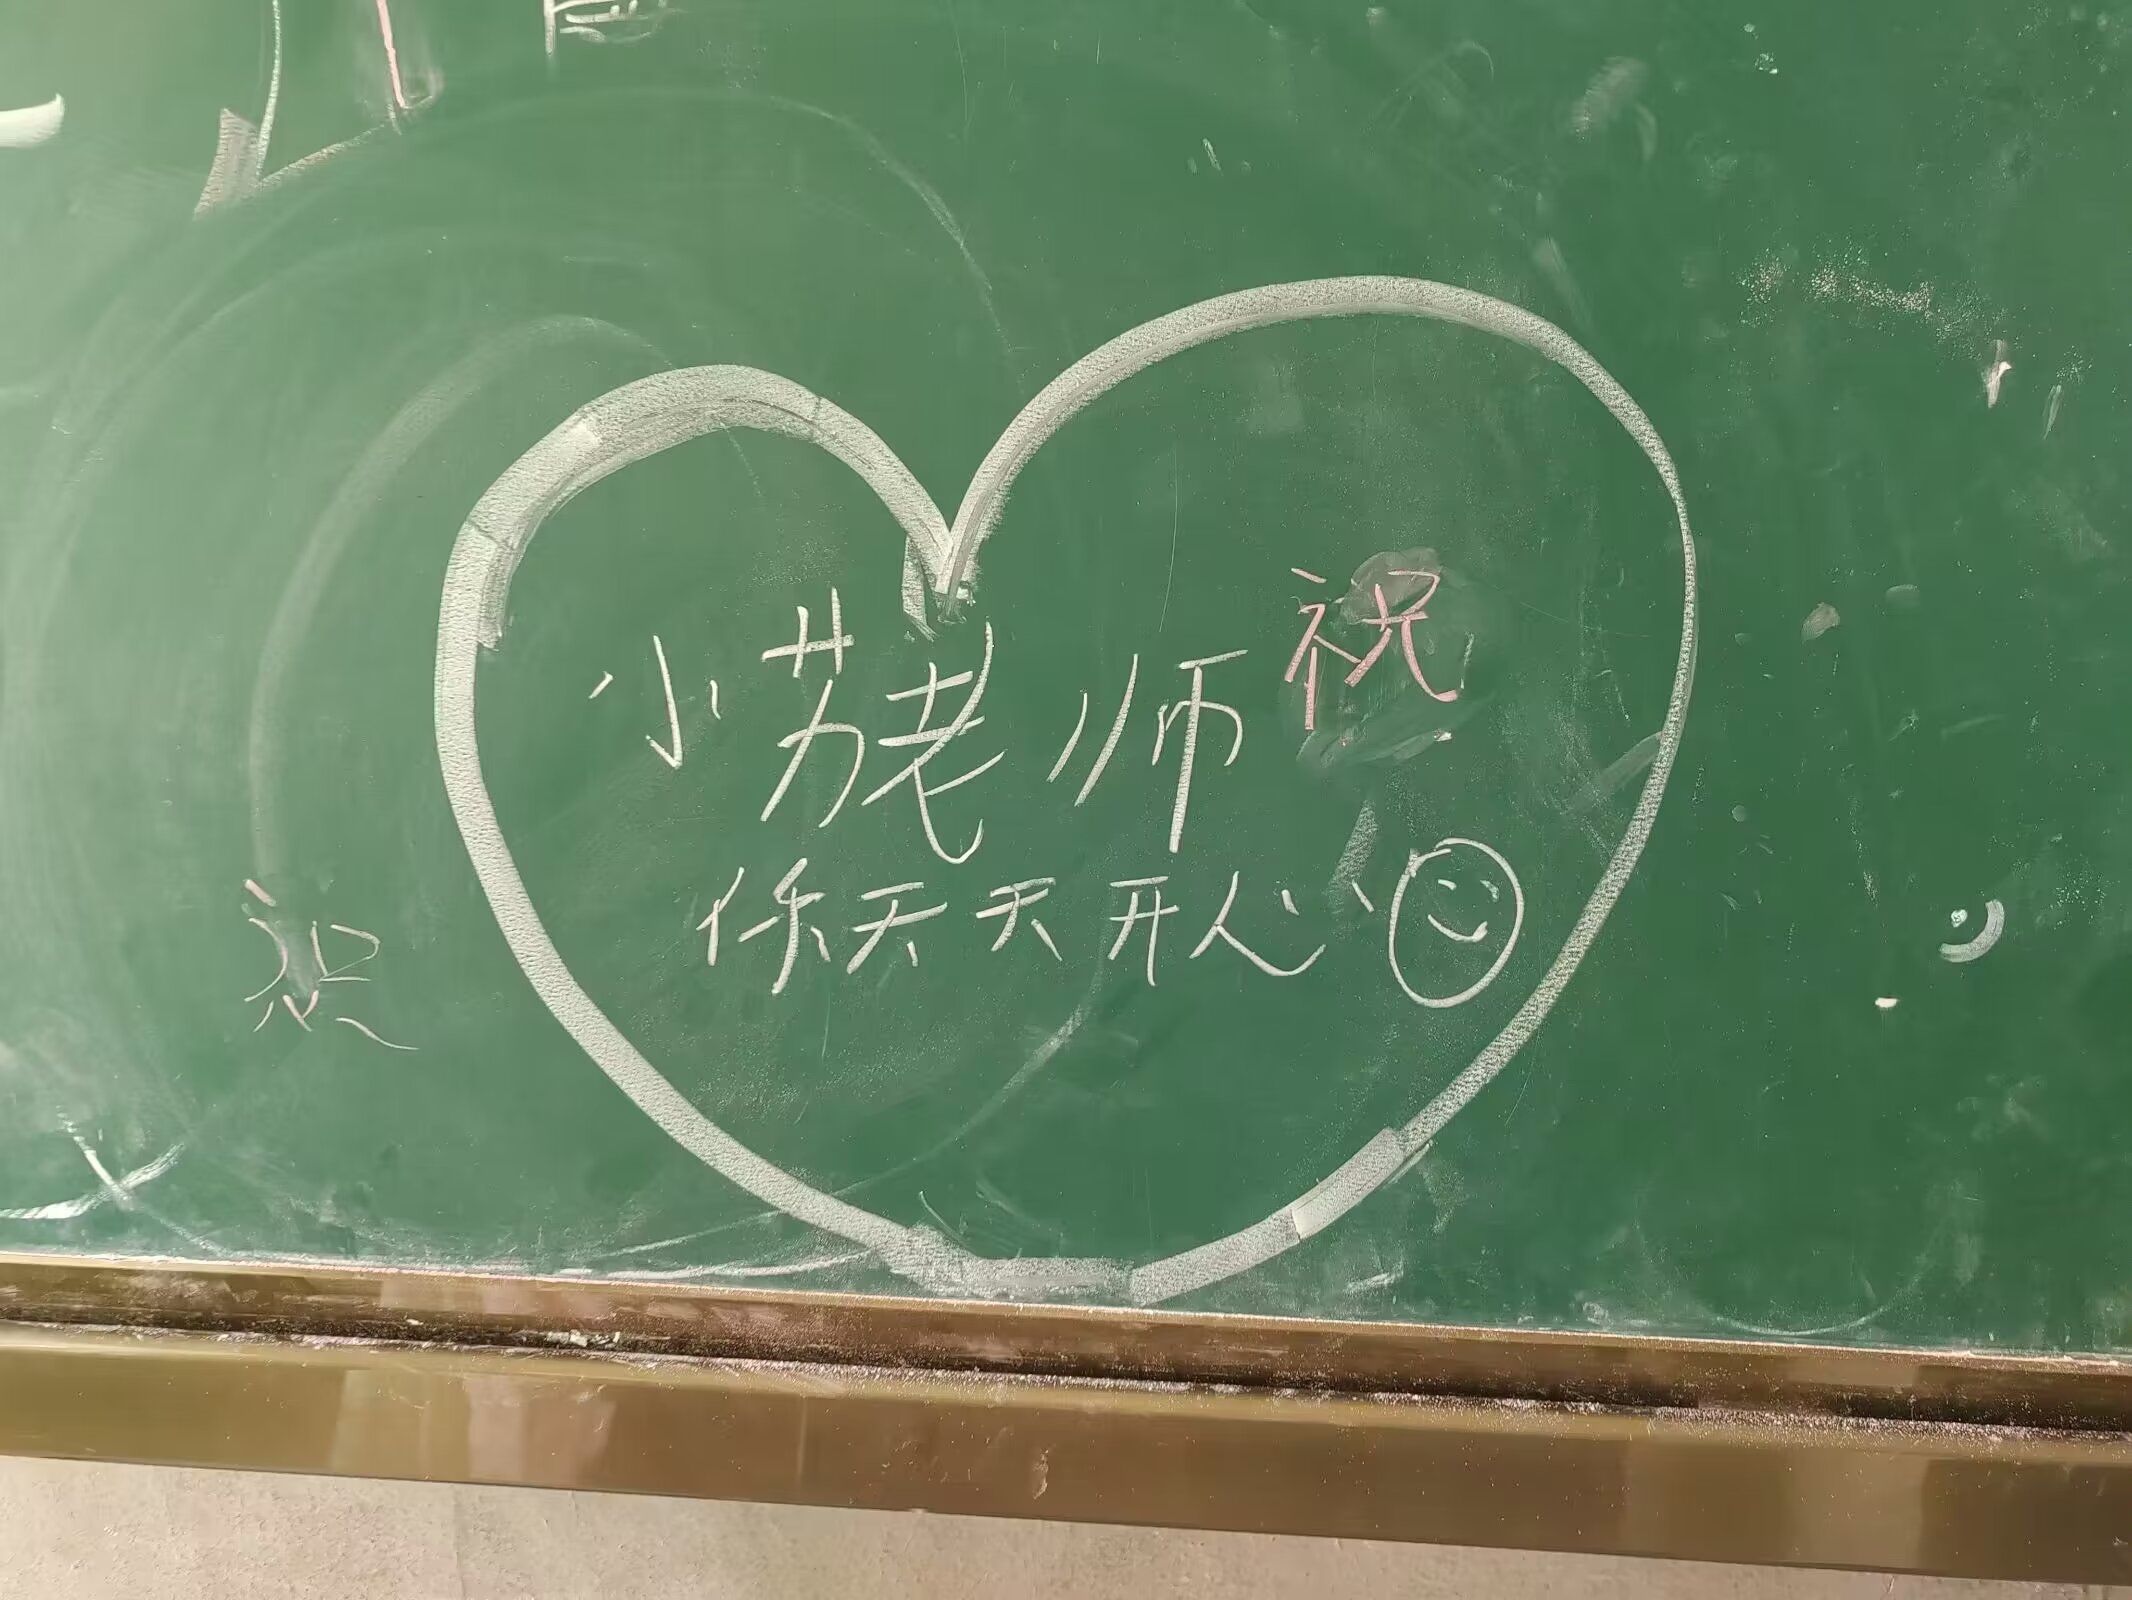 小苏老师祝
你天天开心